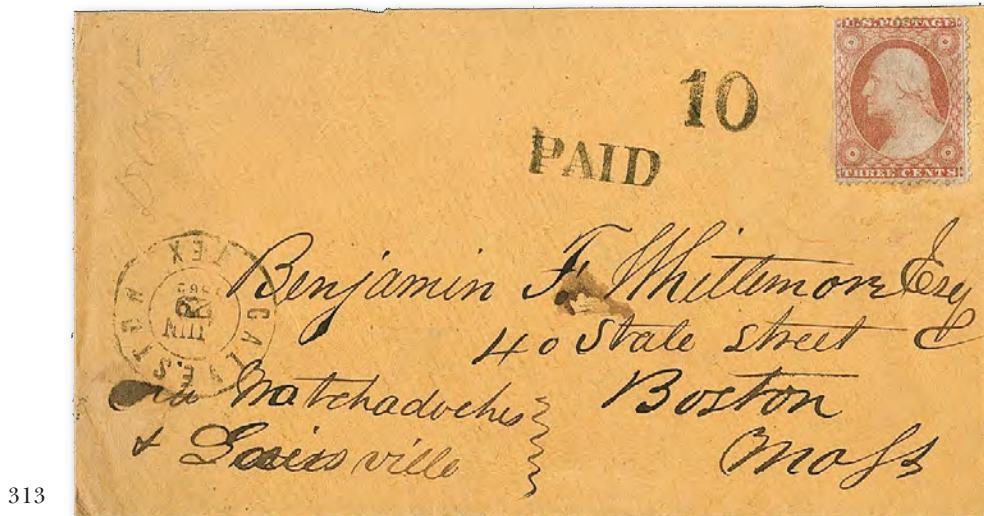 U.S. POSTAGE
THREE CENTS
10
PAID
GALVESTON TEX
JUN
Benjamin F. Whittemore Esq
40 State street
Boston
Mass
Via Natchadoches
& Louisville
313